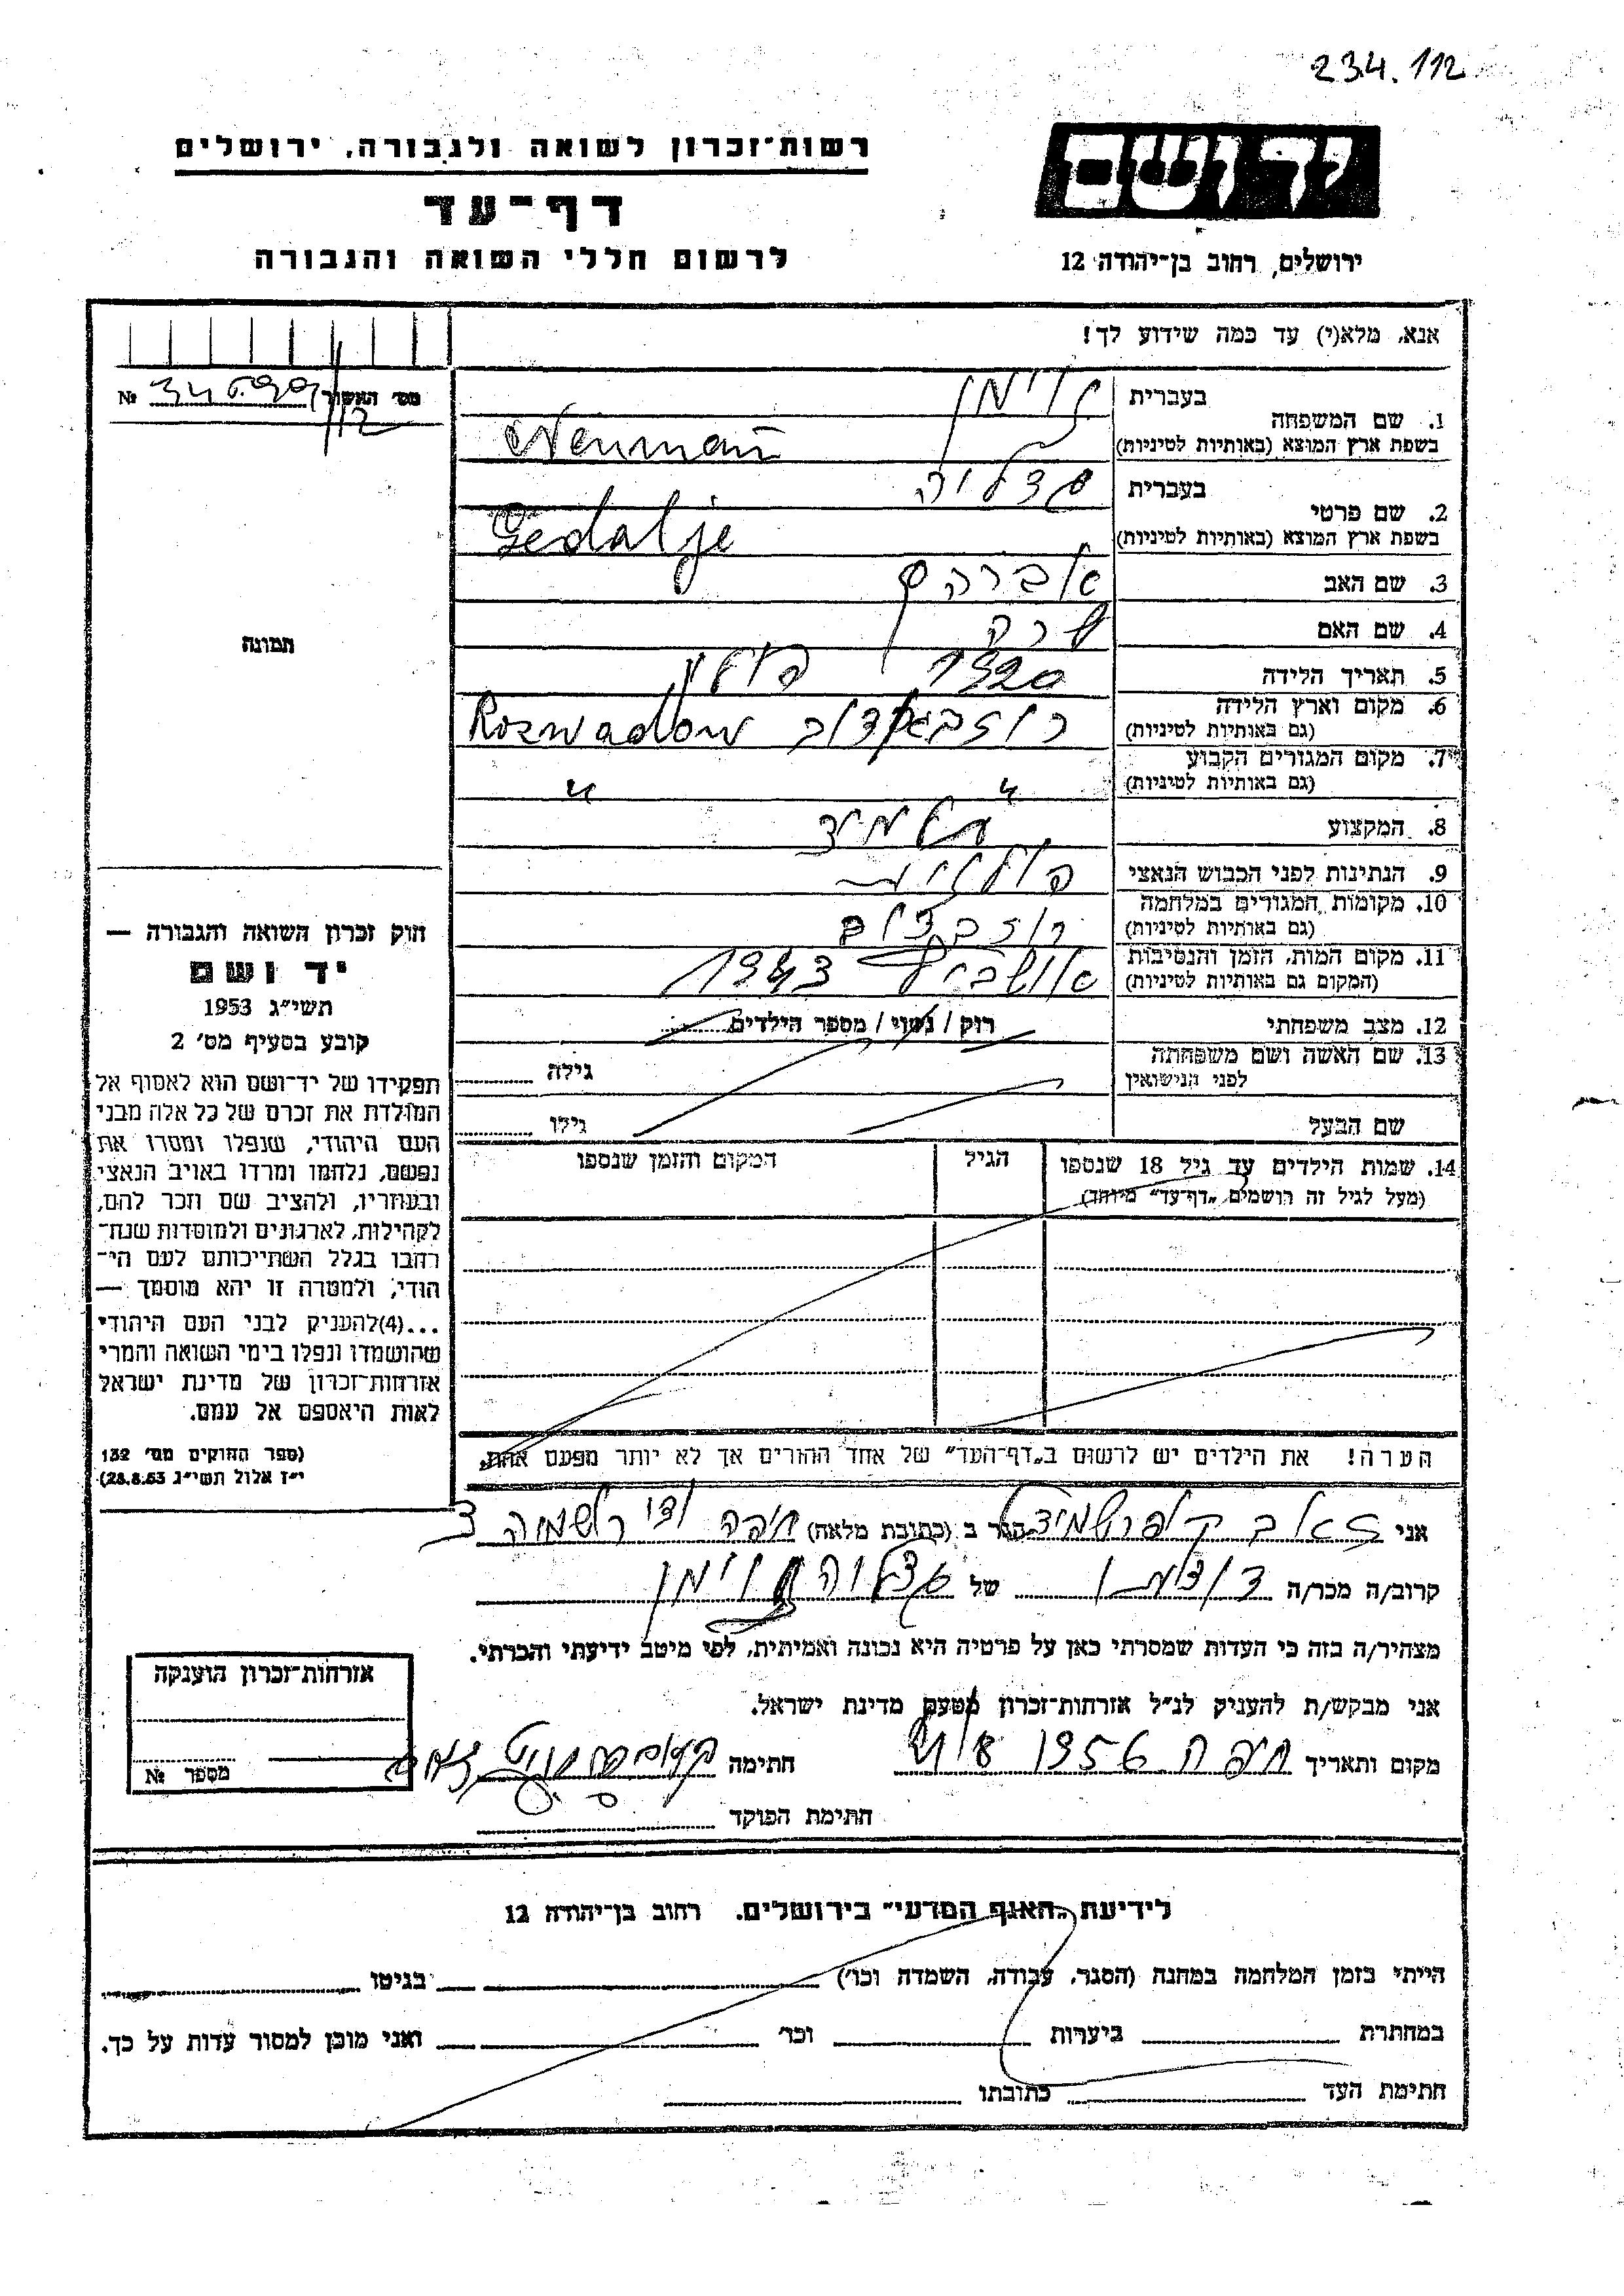 234.112
רשות־זכרון לשואה ולגבורה, ירושלים
יד ושם
דף־עד
לרשום חללי השואה והגבורה
ירושלים, רחוב בן־יהודה 12
אנא, מלא(י) עד כמה שידוע לך!
מס' האשור №
1. שם המשפחה
בעברית נוימן
בשפת ארץ המוצא (באותיות לטיניות) Neuman
2. שם פרטי
בעברית גדליה
בשפת ארץ המוצא (באותיות לטיניות) Gedalje
3. שם האב אברהם
4. שם האם שרה
5. תאריך הלידה 1920 פולין
6. מקום וארץ הלידה רוזבאדוב Rozwadow
(גם באותיות לטיניות)
7. מקום המגורים הקבוע " "
(גם באותיות לטיניות)
8. המקצוע תלמיד
9. הנתינות לפני הכבוש הנאצי פולנית
10. מקומות המגורים במלחמה
(גם באותיות לטיניות)
11. מקום המות, הזמן והנסיבות אושביץ 1943
(המקום גם באותיות לטיניות)
12. מצב משפחתי רוק / נשוי / מספר הילדים
13. שם האשה ושם משפחתה
לפני הנישואין
גילה
שם הבעל גילו
14. שמות הילדים עד גיל 18 שנספו הגיל המקום והזמן שנספו
(מעל לגיל זה רושמים "דף־עד" מיוחד)
הערה! את הילדים יש לרשום ב"דף־העד" של אחד ההורים אך לא יותר מפעם אחת.
תמונה
חוק זכרון השואה והגבורה —
יד ושם
תשי"ג 1953
קובע בסעיף מס' 2
תפקידו של יד־ושם הוא לאסוף אל
המולדת את זכרם של כל אלה מבני
העם היהודי, שנפלו ומסרו את
נפשם, נלחמו ומרדו באויב הנאצי
ובעוזריו, ולהציב שם וזכר להם,
לקהילות, לארגונים ולמוסדות שנח־
רבו בגלל השתייכותם לעם הי־
הודי, ולמטרה זו יהא מוסמך —
...(4)להעניק לבני העם היהודי
שהושמדו ונפלו בימי השואה והמרי
אזרחות־זכרון של מדינת ישראל
לאות היאספם אל עמם.
(ספר החוקים מס' 132
י"ז אלול תשי"ג 28.8.53)
אני זאב הגר ב (כתובת מלאה) חיפה
קרוב/ה מכר/ה של גדליה נוימן
מצהיר/ה בזה כי העדות שמסרתי כאן על פרטיה היא נכונה ואמיתית, לפי מיטב ידיעתי והכרתי.
אני מבקש/ת להעניק לנ"ל אזרחות־זכרון מטעם מדינת ישראל.
מקום ותאריך חיפה 1956 חתימה
חתימת הפוקד
אזרחות־זכרון הוענקה
מספר №
לידיעת "האגף המדעי" בירושלים. רחוב בן־יהודה 12
הייתי בזמן המלחמה במחנה (הסגר, עבודה, השמדה וכו') בגיטו
במחתרת ביערות וכו' ואני מוכן למסור עדות על כך.
חתימת העד כתובתו